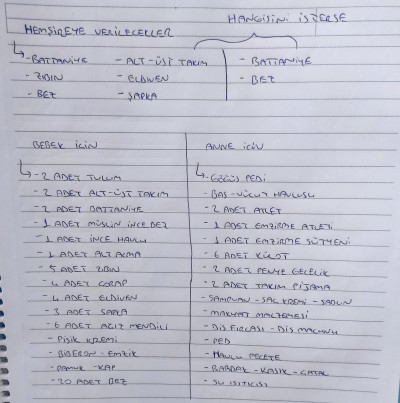 HANGİSİNİ İSTERSE
HEMŞİREYE VERİLECELLER
- BATTANİYE - ALT-ÜST TAKIM - BATTANİYE
- ZIBIN - ELDİVEN - BEZ
- BEZ - ŞAPKA
BEBEK İÇİN
- 2 ADET TULUM
- 2 ADET ALT-ÜST TAKIM
- 2 ADET BATTANİYE
- 1 ADET MÜSLİN İNCE BEZ
- 1 ADET İNCE HAVLU
- 1 ADET ALT AÇMA
- 5 ADET ZIBIN
- 4 ADET ÇORAP
- 4 ADET ELDİVEN
- 3 ADET ŞAPKA
- 6 ADET AĞIZ MENDİLİ
- PİŞİK KREMİ
- BİBERON - EMZİK
- PAMUK - KAP
- 20 ADET BEZ
ANNE İÇİN
- GÖĞÜS PEDİ
- BAŞ - VÜCUT HAVLUSU
- 2 ADET ATLET
- 1 ADET EMZİRME ATLETİ
- 1 ADET EMZİRME SÜTYENİ
- 6 ADET KÜLOT
- 2 ADET PENYE GECELİK
- 2 ADET TAKIM PİJAMA
- ŞAMPUAN - SAÇ KREMİ - SABUN
- MAKYAJ MALZEMESİ
- DİŞ FIRÇASI - DİŞ MACUNU
- PED
- HAVLU PEÇETE
- BARDAK - KAŞIK - ÇATAL
- SU ISITICISI